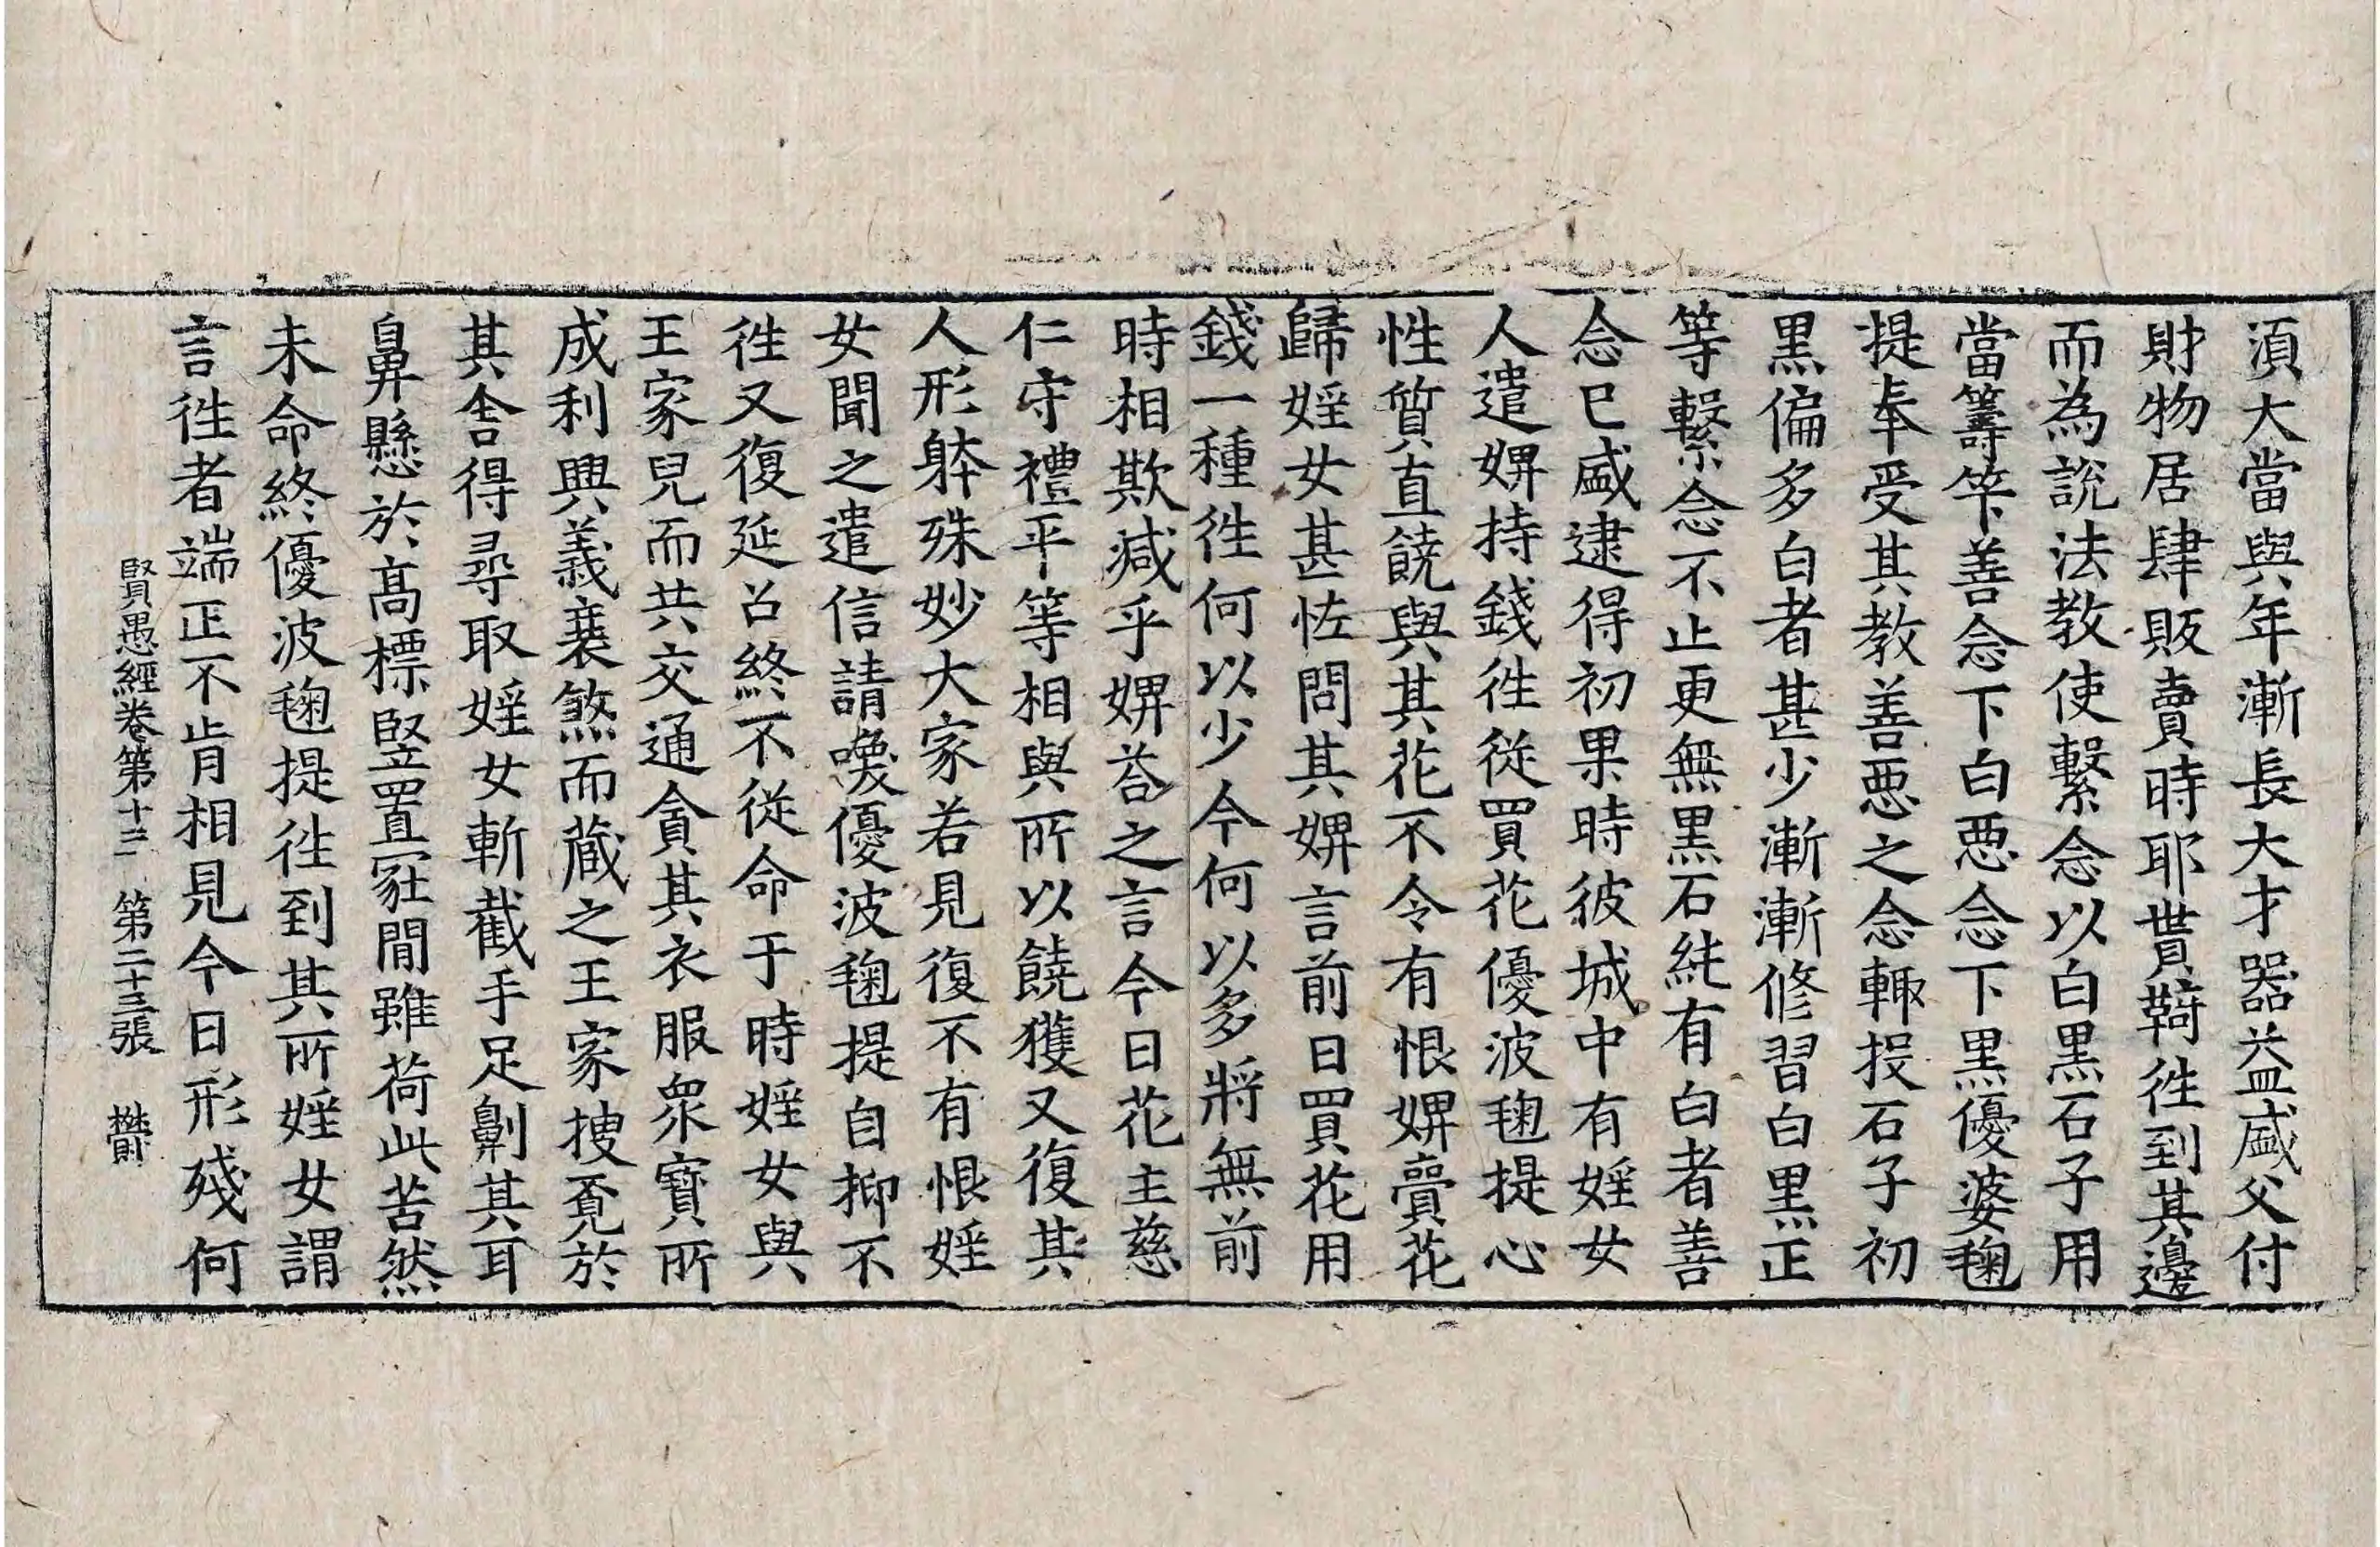 湏大當與年漸長大才器益盛父付
財物居肆販賣時耶貰䩭徃到其邊
而為說法教使繫念以白黒石子用
當籌筭善念下白惡念下黒優婆毱
提奉受其教善惡之念輙投石子初
黒偏多白者甚少漸漸修習白黒正
等繫念不止更無黒石純有白者善
念已盛逮得初果時彼城中有婬女
人遣婢持錢徃從買花優波毱提心
性質直饒與其花不令有恨婢賣花
歸婬女甚恠問其婢言前日買花用
錢一種徃何以少今何以多將無前
時相欺減乎婢荅之言今日花主慈
仁守禮平等相與所以饒獲又復其
人形躰殊妙大家若見復不有恨婬
女聞之遣信請喚優波毱提自抑不
徃又復延召終不從命于時婬女與
王家兒而共交通貪其衣服衆寶所
成利興義衰煞而藏之王家搜覔於
其舍得尋取婬女斬截手足劓其耳
鼻懸於髙標竪置冢間雖荷此苦然
未命終優波毱提徃到其所婬女謂
言徃者端正不肯相見今日形殘何
賢愚經卷第十三　第二十三張　欝